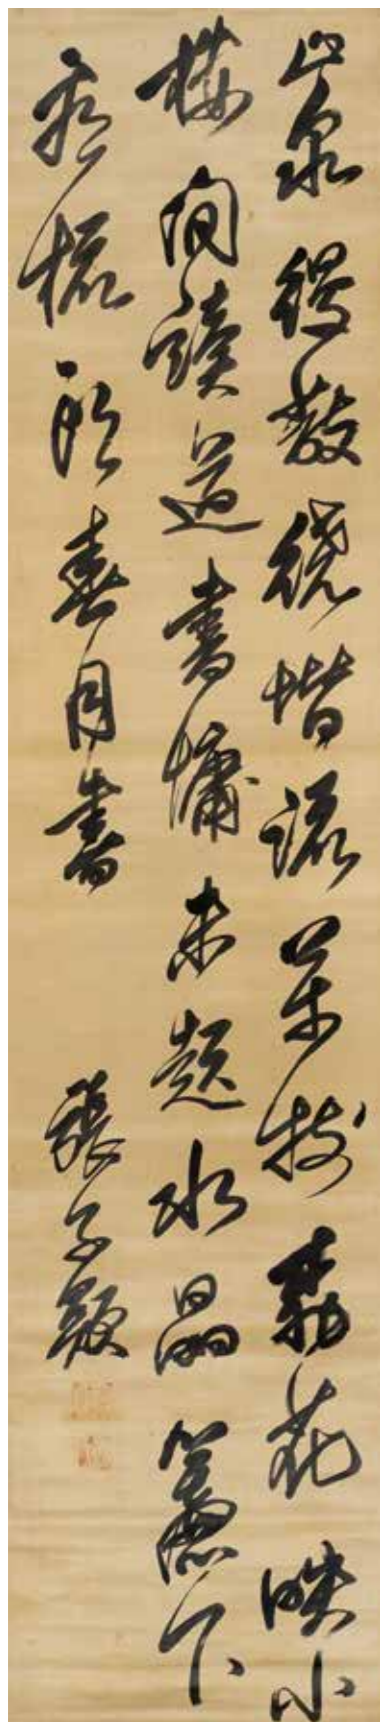 山泉漫散繞階流萬樹桃花映小
樓閒讀道書慵未起水晶簾下
看梳頭春月書 張子